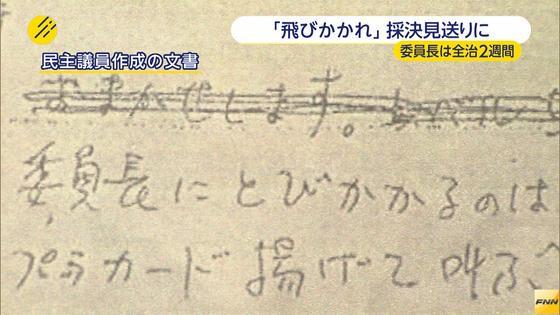 「飛びかかれ」採決見送りに
委員長は全治2週間
民主議員作成の文書
おまかせします。
委員長にとびかかるのは
プラカード揚げて叫ぶ
FNN